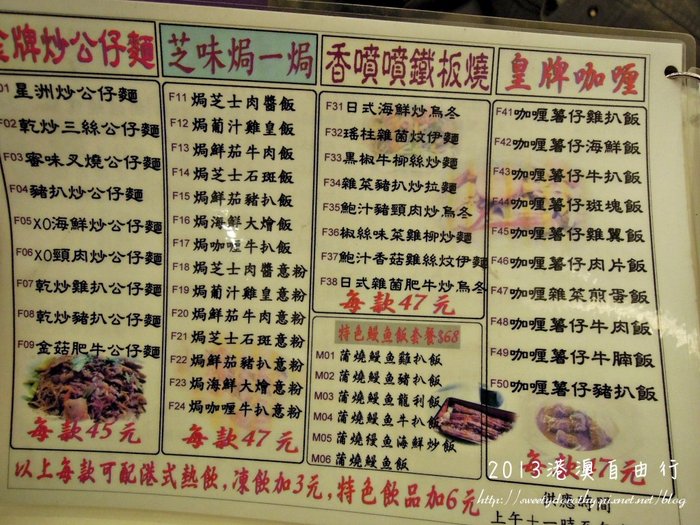 金牌炒公仔麵
01 星洲炒公仔麵
F02 乾炒三絲公仔麵
F03 蜜味叉燒公仔麵
F04 豬扒炒公仔麵
F05 XO海鮮炒公仔麵
F06 XO頸肉炒公仔麵
F07 乾炒雞扒公仔麵
F08 乾炒豬扒公仔麵
F09 金菇肥牛公仔麵
每款45元
芝味焗一焗
F11 焗芝士肉醬飯
F12 焗葡汁雞皇飯
F13 焗鮮茄牛肉飯
F14 焗芝士石斑飯
F15 焗鮮茄豬扒飯
F16 焗海鮮大燴飯
F17 焗咖喱牛扒飯
F18 焗芝士肉醬意粉
F19 焗葡汁雞皇意粉
F20 焗鮮茄牛肉意粉
F21 焗芝士石斑意粉
F22 焗鮮茄豬扒意粉
F23 焗海鮮大燴意粉
F24 焗咖喱牛扒意粉
每款47元
香噴噴鐵板燒
F31 日式海鮮炒烏冬
F32 瑤柱雜菌炆伊麵
F33 黑椒牛柳絲炒麵
F34 雜菜豬扒炒拉麵
F35 鮑汁豬頸肉炒烏冬
F36 椒絲味菜雞柳炒麵
F37 鮑汁香菇雞絲炆伊麵
F38 日式雜菌肥牛炒烏冬
每款47元
特色鰻魚飯套餐$68
M01 蒲燒鰻魚雞扒飯
M02 蒲燒鰻魚豬扒飯
M03 蒲燒鰻魚龍利飯
M04 蒲燒鰻魚牛扒飯
M05 蒲燒鰻魚海鮮炒飯
M06 蒲燒鰻魚飯
皇牌咖喱
F41 咖喱薯仔雞扒飯
F42 咖喱薯仔海鮮飯
F43 咖喱薯仔牛扒飯
F44 咖喱薯仔斑塊飯
F45 咖喱薯仔雞翼飯
F46 咖喱薯仔肉片飯
F47 咖喱雜菜煎蛋飯
F48 咖喱薯仔牛肉飯
F49 咖喱薯仔牛腩飯
F50 咖喱薯仔豬扒飯
每款47元
以上每款可配港式熱飲,凍飲加3元,特色飲品加6元
供應時間
上午十一時至
2013港澳自由行
http://sweetydorothy.pixnet.net/blog